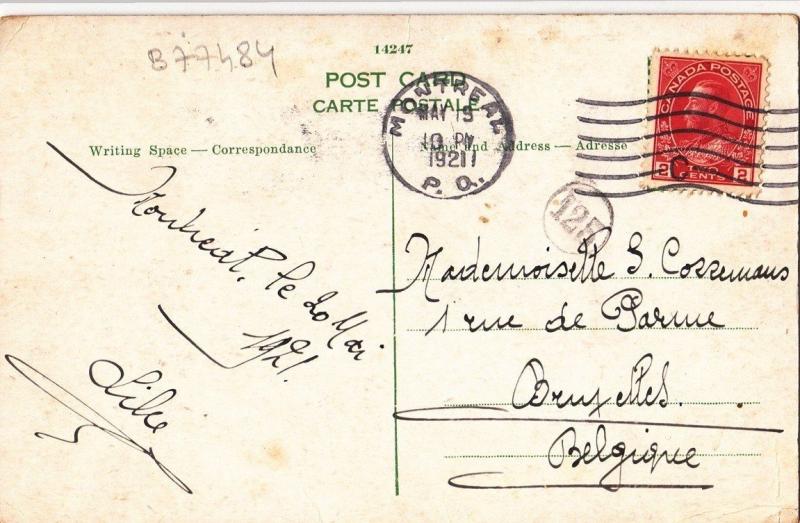 B77484
14247
POST CARD
CARTE POSTALE
Writing Space — Correspondance
Name and Address — Adresse
MONTREAL
MAY 19
10 PM
1921
P. Q.
CANADA POSTAGE
2 CENTS 2
Montréal, le 20 Mai
1921.
Mademoiselle S. Cossemans
1 rue de Parme
Bruxelles.
Belgique